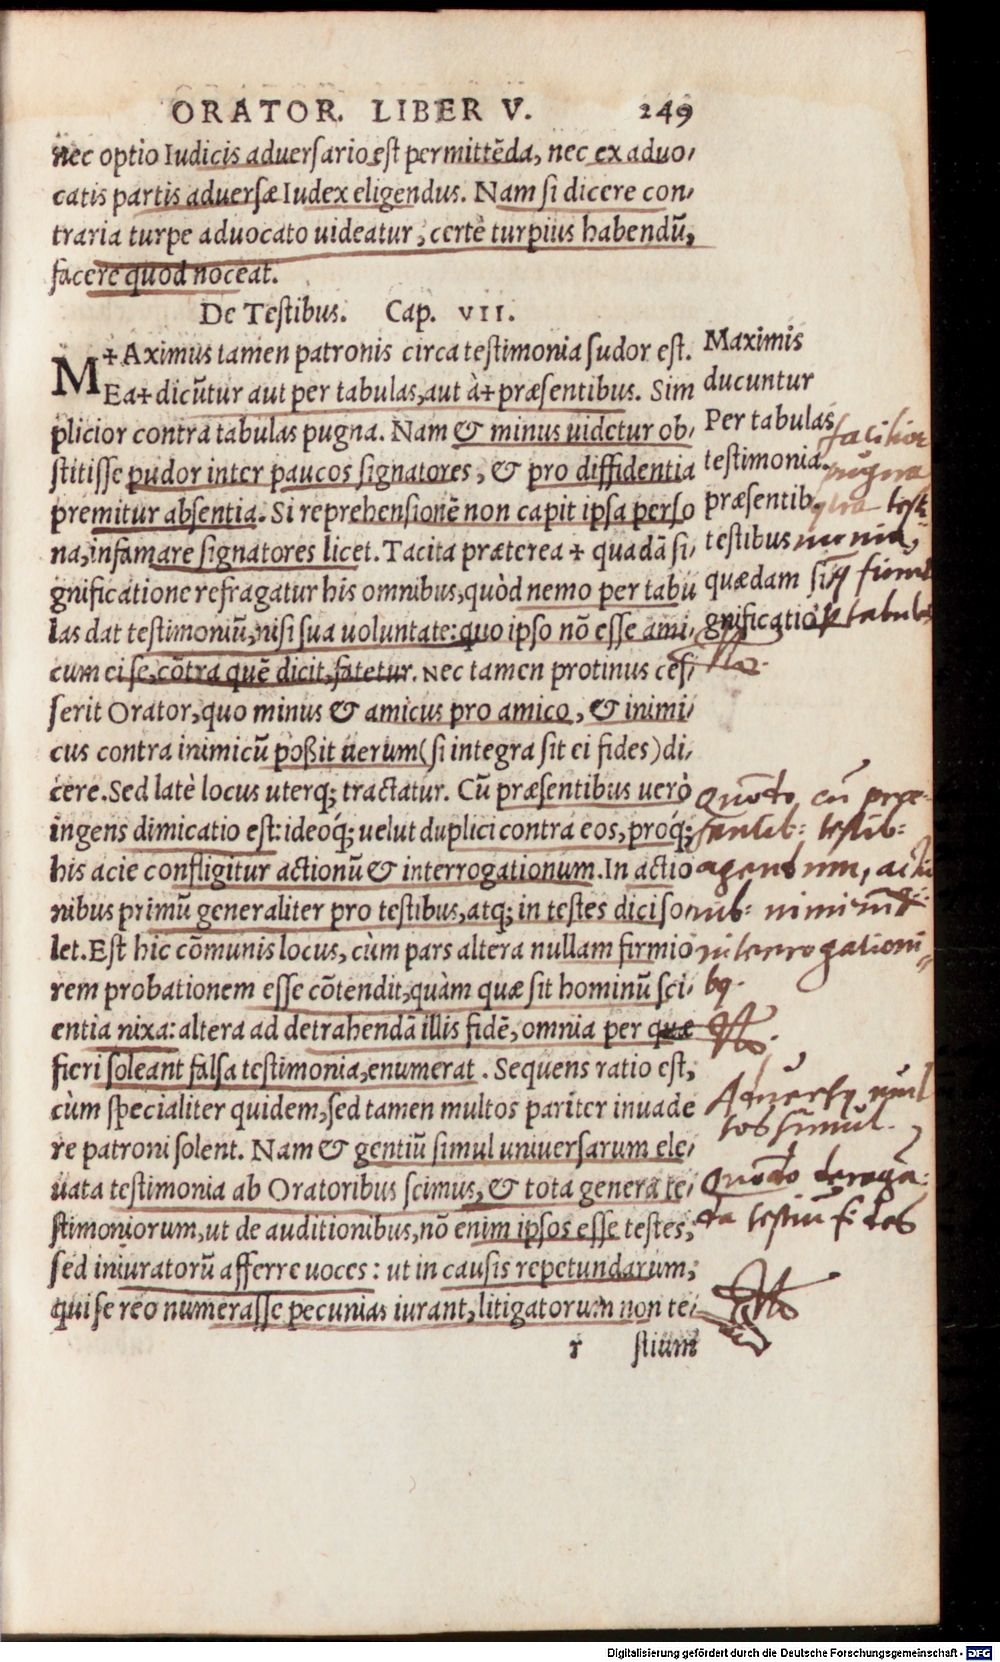 ORATOR. LIBER V. 249
nec optio Iudicis aduersario est permittēda, nec ex aduo,
catis partis aduersæ Iudex eligendus. Nam si dicere con,
traria turpe aduocato uideatur, certè turpius habendū,
facere quod noceat.
De Testibus. Cap. VII.
M+Aximus tamen patronis circa testimonia sudor est.
Ea+ dicūtur aut per tabulas, aut à+ præsentibus. Sim
plicior contra tabulas pugna. Nam & minus uidetur ob,
stitisse pudor inter paucos signatores, & pro diffidentia
premitur absentia. Si reprehensionē non capit ipsa perso
na, infamare signatores licet. Tacita præterea + quadā si,
gnificatione refragatur his omnibus, quòd nemo per tabu
las dat testimoniū, nisi sua uoluntate: quo ipso nō esse ami,
cum ei se, cōtra quē dicit, fatetur. Nec tamen protinus cesi
serit Orator, quo minus & amicus pro amico, & inimi,
cus contra inimicū poßit uerum (si integra sit ei fides) di,
cere. Sed latè locus uterq; tractatur. Cū præsentibus uerò
ingens dimicatio est: ideoq́; uelut duplici contra eos, proq́;
his acie confligitur actionū & interrogationum. In actio
nibus primū generaliter pro testibus, atq; in testes dici so
let. Est hic cōmunis locus, cùm pars altera nullam firmio
rem probationem esse cōtendit, quàm quæ sit hominū sci,
entia nixa: altera ad detrahendā illis fidē, omnia per quæ
fieri soleant falsa testimonia, enumerat. Sequens ratio est,
cùm specialiter quidem, sed tamen multos pariter inuade
re patroni solent. Nam & gentiū simul uniuersarum ele,
uata testimonia ab Oratoribus scimus, & tota genera te,
stimoniorum, ut de auditionibus, nō enim ipsos esse testes,
sed iniuratorū afferre uoces: ut in causis repetundarum,
qui se reo numerasse pecunias iurant, litigatorum non te,
r stium
Maximis
ducuntur
Per tabulas
testimonia.
præsentib
testibus
quædam
gnificatio
facilior
pugna
testi
monia,
tabulas
Quōdo cū præ-
sentib: testib:
agendum, actio
nib: nimirū &
interrogationi
bq.
Aduersq mul
tos simul.
Quōdo deroga-
da testiū fides